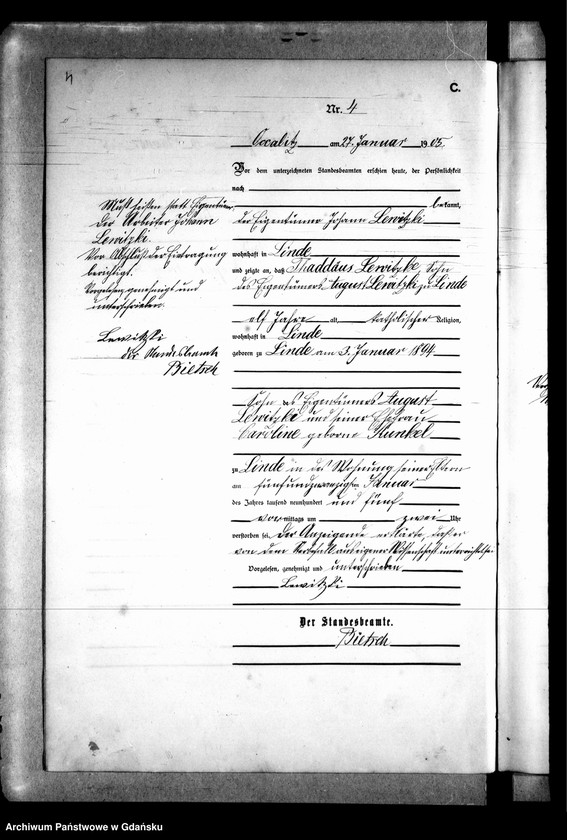 4
C.
Nr. 4
am 27. Januar 1905.
Vor dem unterzeichneten Standesbeamten erschien heute, der Persönlichkeit
nach
bekannt,
der Eigentümer Johann Lewitzki
Muß heißen statt Eigentümer
der Arbeiter Johann
Lewitzki.
Vor Abschluß der Eintragung
berichtigt.
Vorgelesen, genehmigt und
unterschrieben
Lewitzki
Der Standesbeamte
Bietsch
wohnhaft in Linde
und zeigte an, daß Thaddäus Lewitzke, Sohn
des Eigentümers August Lewitzki zu Linde
elf Jahre alt, katholischer Religion,
wohnhaft in Linde
geboren zu Linde am 3. Januar 1894
Sohn des Eigentümers August
Lewitzki und seiner Ehefrau
Caroline geborne Kunkel
zu Linde in der Wohnung seiner Eltern
am fünfundzwanzigsten Januar
des Jahres tausend neunhundert und fünf
vormittags um zwei Uhr
verstorben sei. Der Anzeigende erklärte, daß er
von dem Sterbefall aus eigener Wissenschaft unterrichtet sei
Vorgelesen, genehmigt und unterschrieben
Lewitzki
Der Standesbeamte.
Bietsch
Archiwum Państwowe w Gdańsku